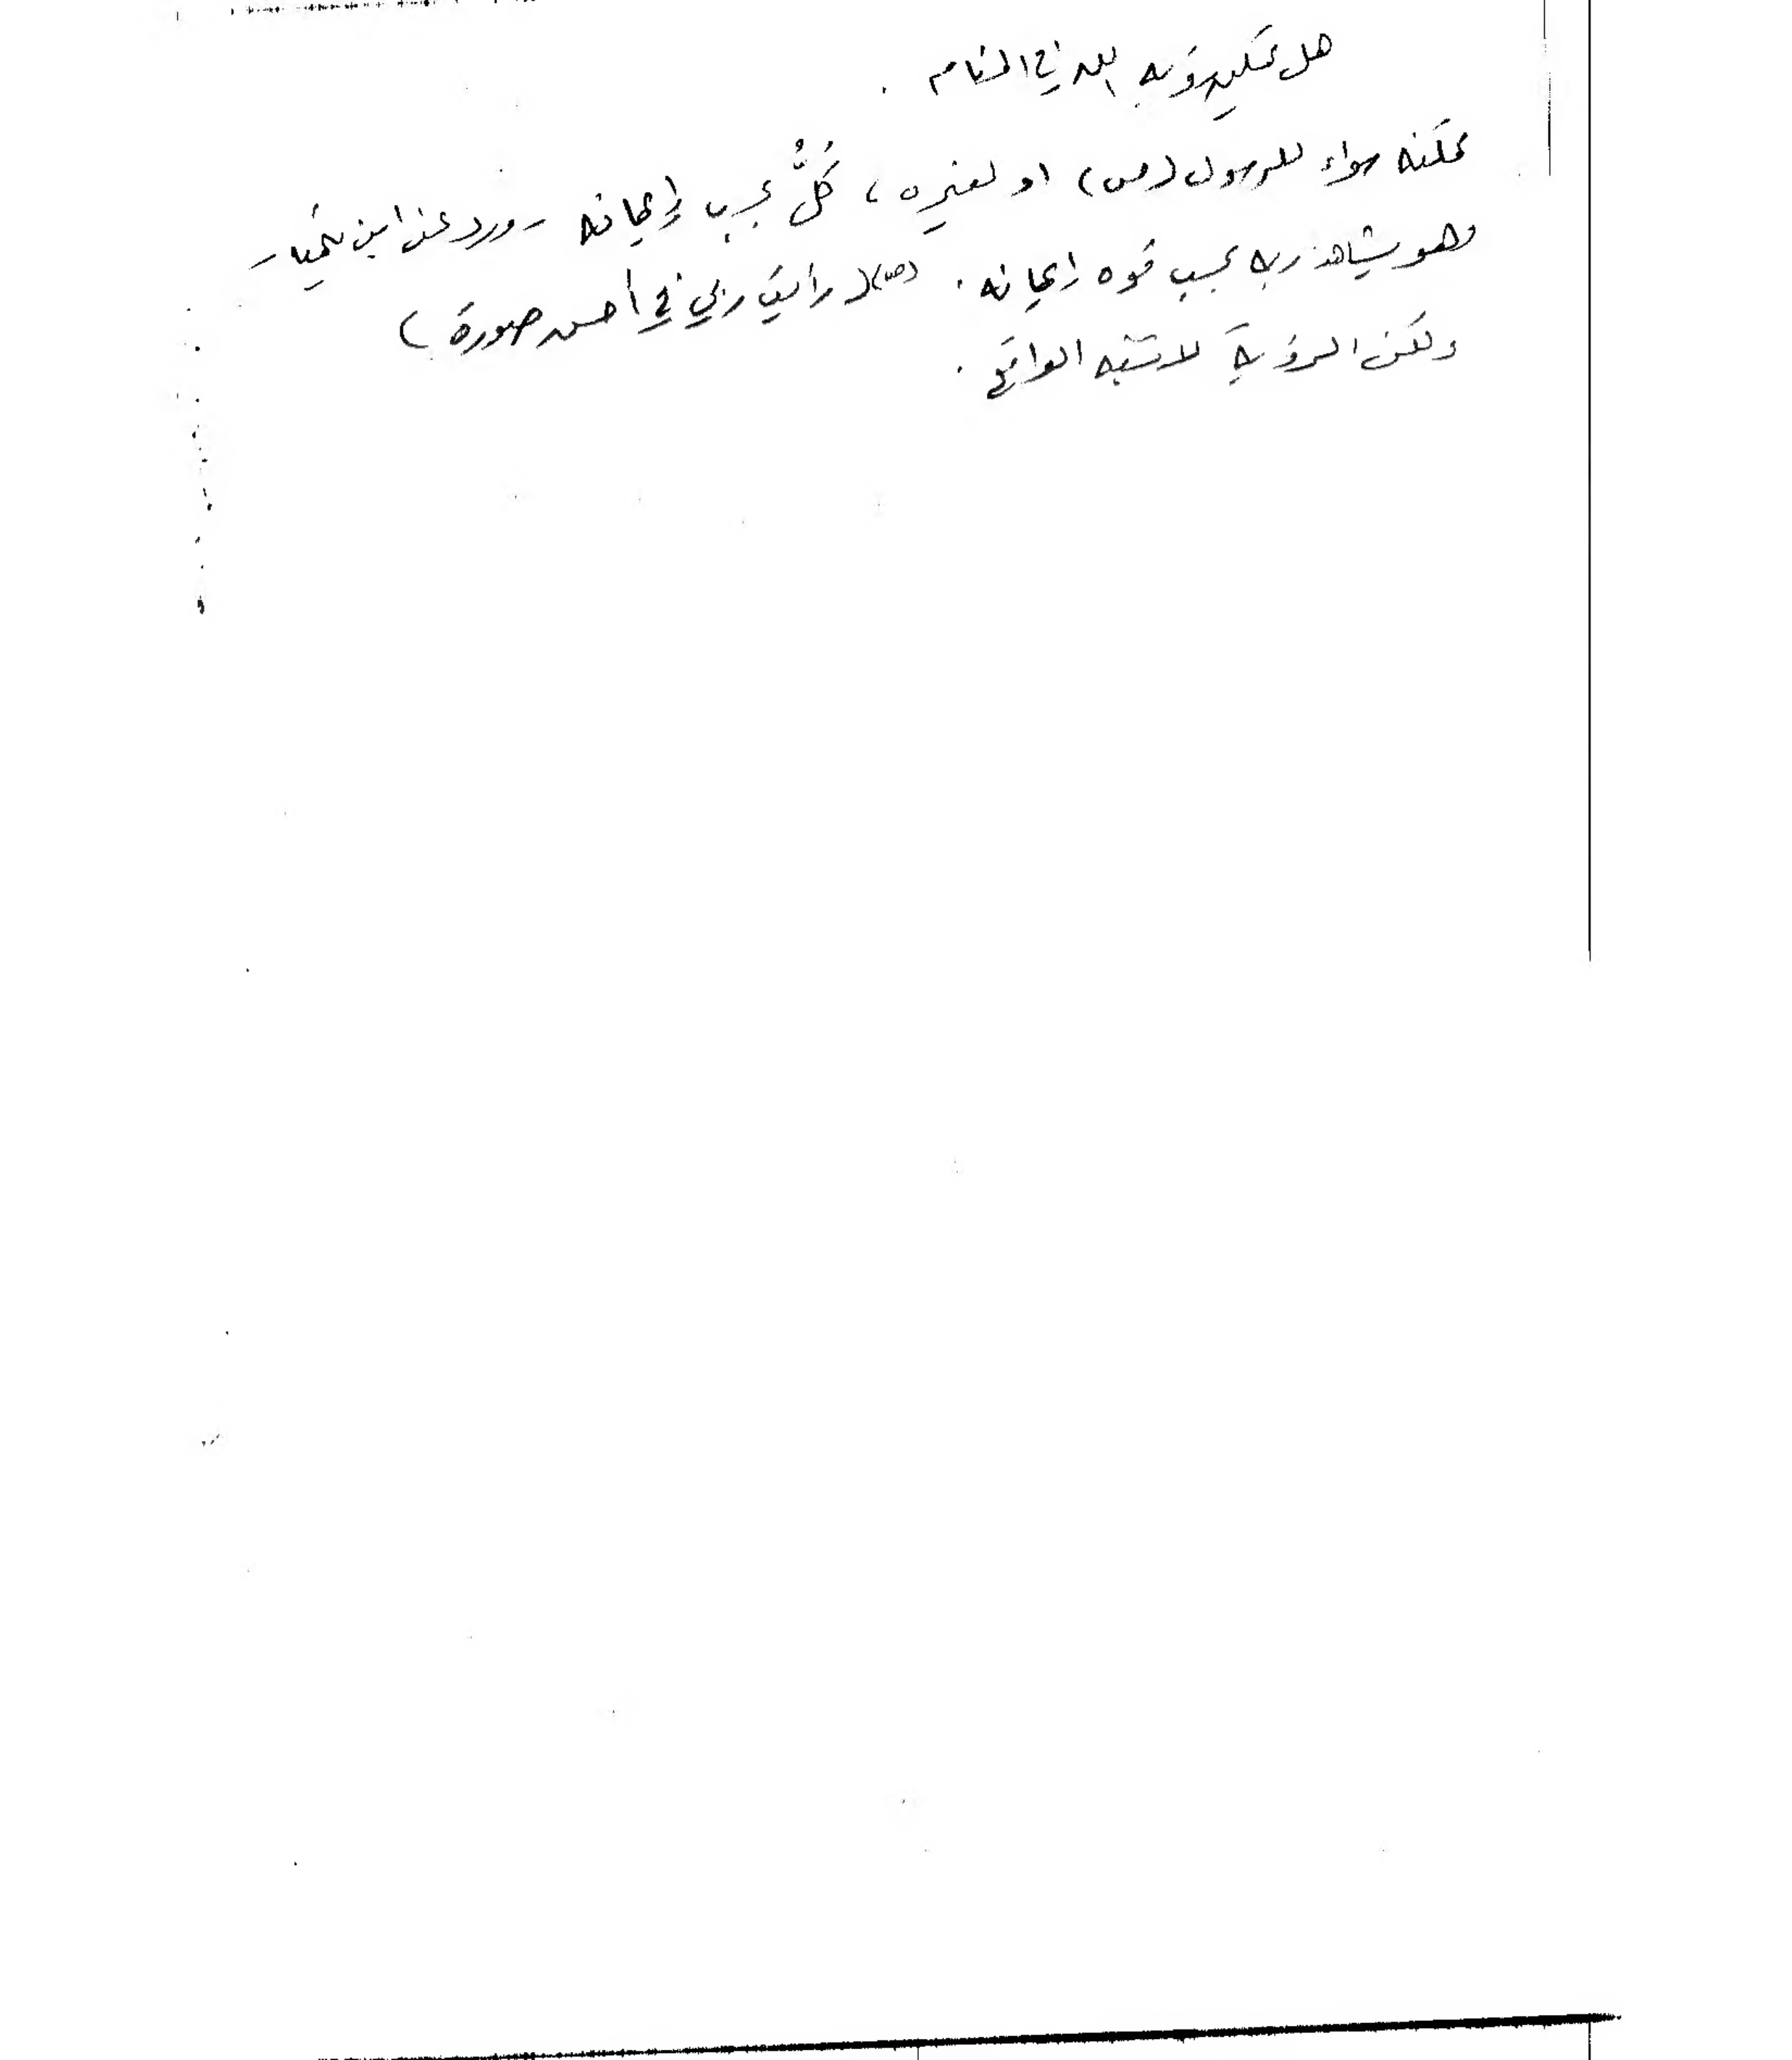 هل يمكن رؤيه الله في المنام .
ممكنه سواء للرسول (ص) او لغيره ، كُلٌّ بحسب إيمانه - وورد عن ابن تيميه -
وهو يشاهد ربه بحسب قوه إيمانه . (ص) ( رأيت ربي في أحسن صورة )
ولكن الرؤية لا تشبه الواقع .